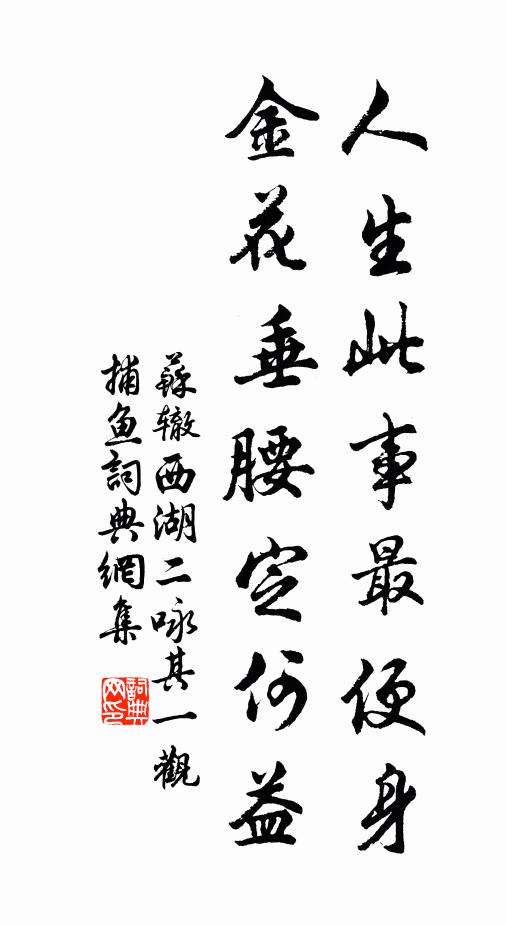 人生此事最便身
金花垂腰定何益
蘇辙西湖二咏其一觀
捕魚詞典網集
詞典网印